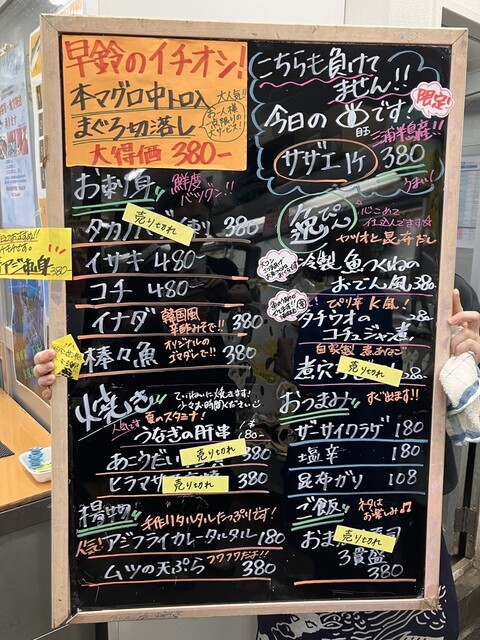 早鈴のイチオシ!
本マグロ中トロ入
まぐろ切落し
大人気!!
お一人様
一点限りの
サービス!
大得価 380-
お刺身 鮮度バツグン!!
売り切れ
380
イサキ 480-
コチ 480-
イナダ 韓国風
辛酢みそで!! 380
棒々魚 オリジナルの
ゴマダレで!! 380
焼き ていねいに焼きます!
少々お時間ください
人気です 夏のスタミナ!
うなぎの肝串 180-
あこうだい 売り切れ 380
ヒラマサ 売り切れ 380
揚げ物 手作りタルタルたっぷりです!
人気! アジフライカレータルタル 180
フワフワだヨ!!
ムツの天ぷら 380
こちらも負けて
ません!!
限定!
今日の 目玉 です!
三浦半島産!!
サザエ1ケ 380
うまい!
心こめて
仕込んでます☆
ヤツオと昆布だし
冷製 魚つくねの
おでん風 380
ぴり辛 K風!
タチウオの 280
コチュジャン煮
自家製
煮穴子 売り切れ 280
おつまみ すぐ出ます!!
ザーサイクラゲ 180
塩辛 180
昆布ガリ 108
ご飯 ネタは
お楽しみ♫
売り切れ
3貫盛
380
380-